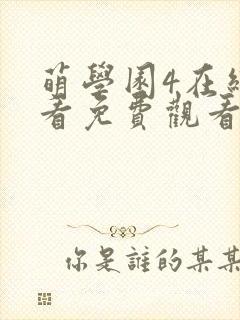 萌學園4在線
看免費觀看
你是誰的某某